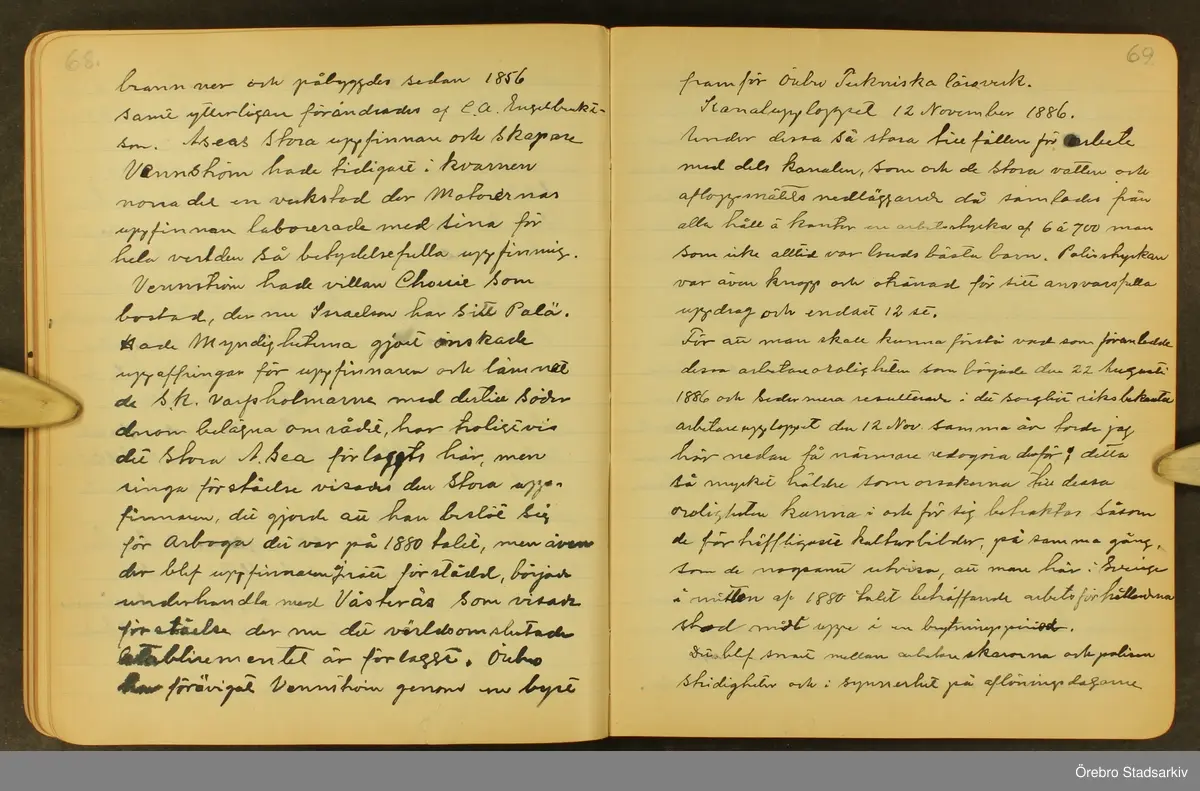 68.
brann ner och påbyggdes sedan 1856
samt ytterligare förändrades af C.A. Engelbrekts-
son. Aseas Stora uppfinnare och Skapare
Vennström hade tidigast i kvarnen
norra del en verkstad der Motorernas
uppfinnare laborerade med sina för
hela verlden så betydelsefulla uppfinning.
Vennström hade villan Chouie Som
bostad, der nu Israelson har Sitt Palä.
Hade Myndigheterna gjort önskade
uppoffringar för uppfinnaren och lämnat
de S.K. Varpholmarna med dertill Söder
derom belägna området, har troligtvis
det Stora A.Sea förlagts här, men
ringa förståelse visades den Stora upp-
finnaren, det gjorde att han beslöt Sig
för Arboga det var på 1880 talet, men även
der blef uppfinnaren fått förstådd, började
underhandla med Västerås Som visade
förståelse der nu det världsomslutade
etablisementet är förlaggt. Örebro
har förävigat Vennström genom en byst
69
framför Örebro Tekniska läroverk.
Kanalupploppet 12 November 1886.
Under dessa så stora tillfällen för arbete
med dels kanalen, som och de Stora vatten och
afloppsnätets nedläggande då samlades från
alla håll å kanter en arbetsstyrka af 6 á 700 man
som icke alltid var Guds bästa barn. Polisstyrkan
var även knapp och okänad för sitt ansvarsfulla
uppdrag och endast 12 st.
För att man skall kunna förstå vad som föranledde
dessa arbetareoroligheter som började den 22 Augusti
1886 och sedermera resulterade i det sorgliit riksbekanta
arbetareupploppet den 12 Nov. samma år torde jag
här nedan få närmare redogöra daför; detta
så mycket häldre som orsakerna till dessa
oroligheter kunna i och för sig betraktas Såsom
de förträffligaste kulturbilder, på samma gång,
som de nogsamt utvisa, att man här i Sverige
i mitten af 1880 talet beträffande arbetsförhållanderna
stod midt uppe i en brytningsperiod.
Det blef snart mellan arbetareskarorna och polisen
stridigheter och i synnerhet på aflöningsdagarne
Örebro Stadsarkiv